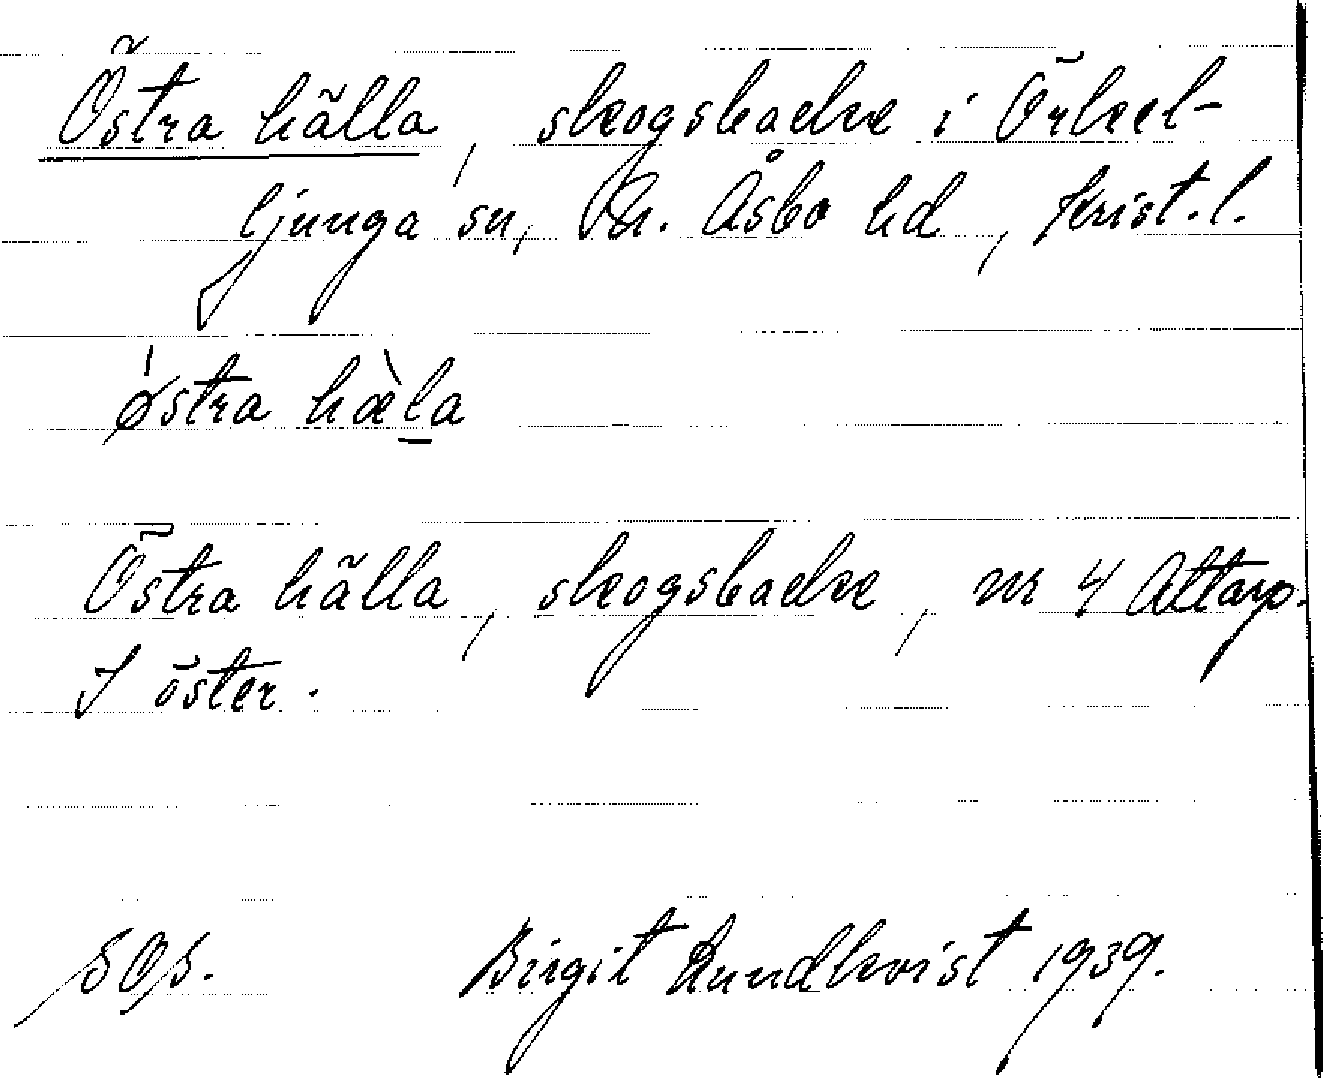 Östra hälla, skogsbacke i Örkel-
ljunga sn, N. Åsbo hd, Krist. l.
østra hæ̀la
Östra hälla, skogsbacke, nr 4 Attarp.
I öster.
Birgit Rundkvist 1939.